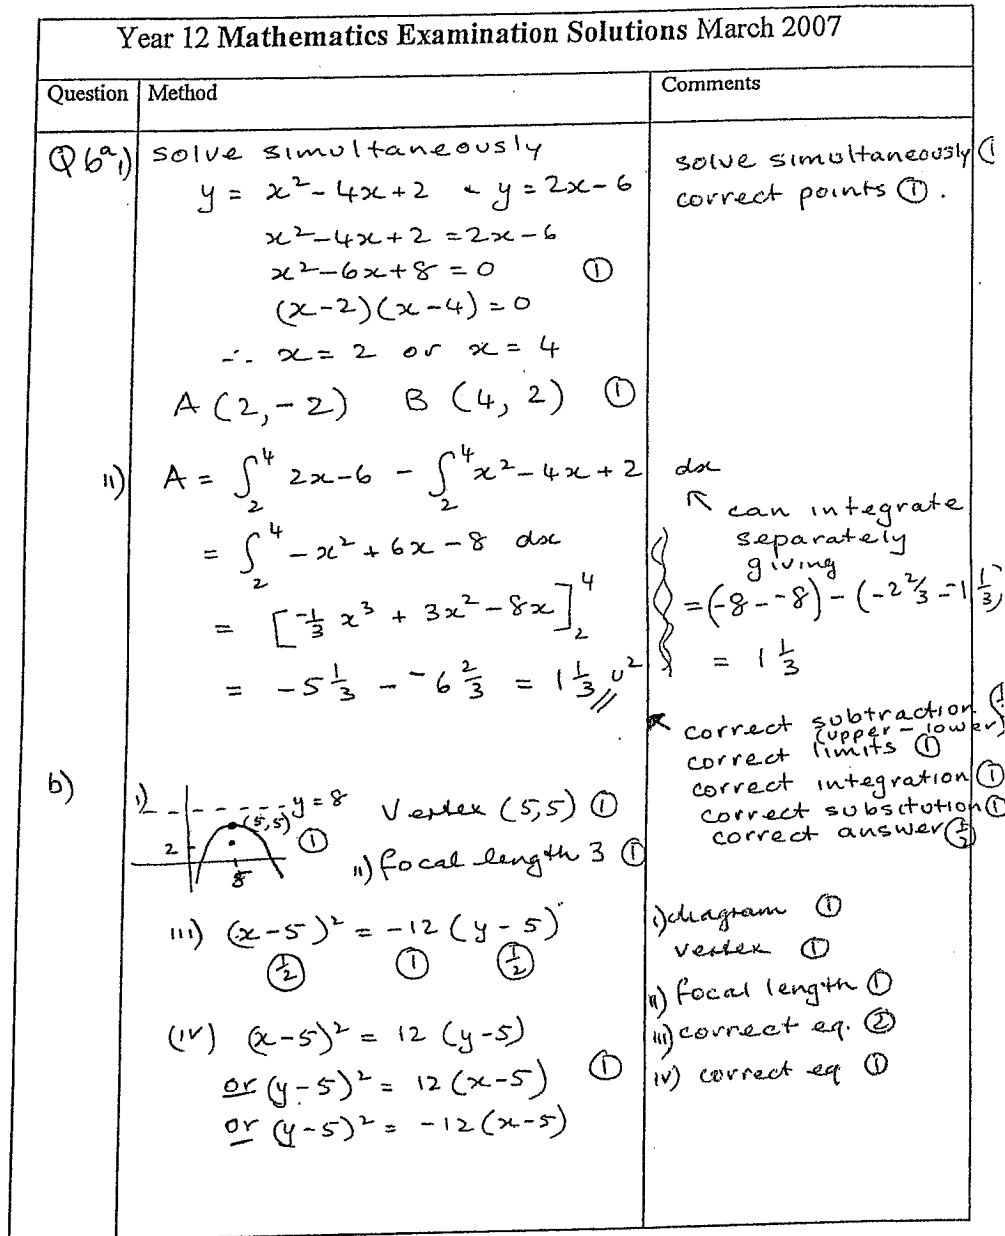 Year 12 Mathematics Examination Solutions March 2007
Question
Method
Comments
Q6a i) solve simultaneously
y = x² - 4x + 2 & y = 2x - 6
x² - 4x + 2 = 2x - 6
x² - 6x + 8 = 0 ①
(x - 2)(x - 4) = 0
∴ x = 2 or x = 4
A (2, -2) B (4, 2) ①
solve simultaneously ①
correct points ①.
ii) A = ∫₂⁴ 2x - 6 - ∫₂⁴ x² - 4x + 2 dx
= ∫₂⁴ -x² + 6x - 8 dx
= [-⅓ x³ + 3x² - 8x]₂⁴
= -5⅓ - ⁻6⅔ = 1⅓ u²
can integrate
separately
giving
= (-8 - -8) - (-2⅔ - -1⅓)
= 1⅓
correct subtraction
(upper - lower)
correct limits ①
correct integration ①
correct substitution ①
correct answer (½)
b)
i) y = 8
(5,5)
①
2
5
Vertex (5,5) ①
ii) focal length 3 ①
iii) (x - 5)² = -12 (y - 5)
(½) ① (½)
(iv) (x - 5)² = 12 (y - 5)
or (y - 5)² = 12 (x - 5) ①
or (y - 5)² = -12 (x - 5)
i) diagram ①
vertex ①
ii) focal length ①
iii) correct eq. ②
iv) correct eq ①